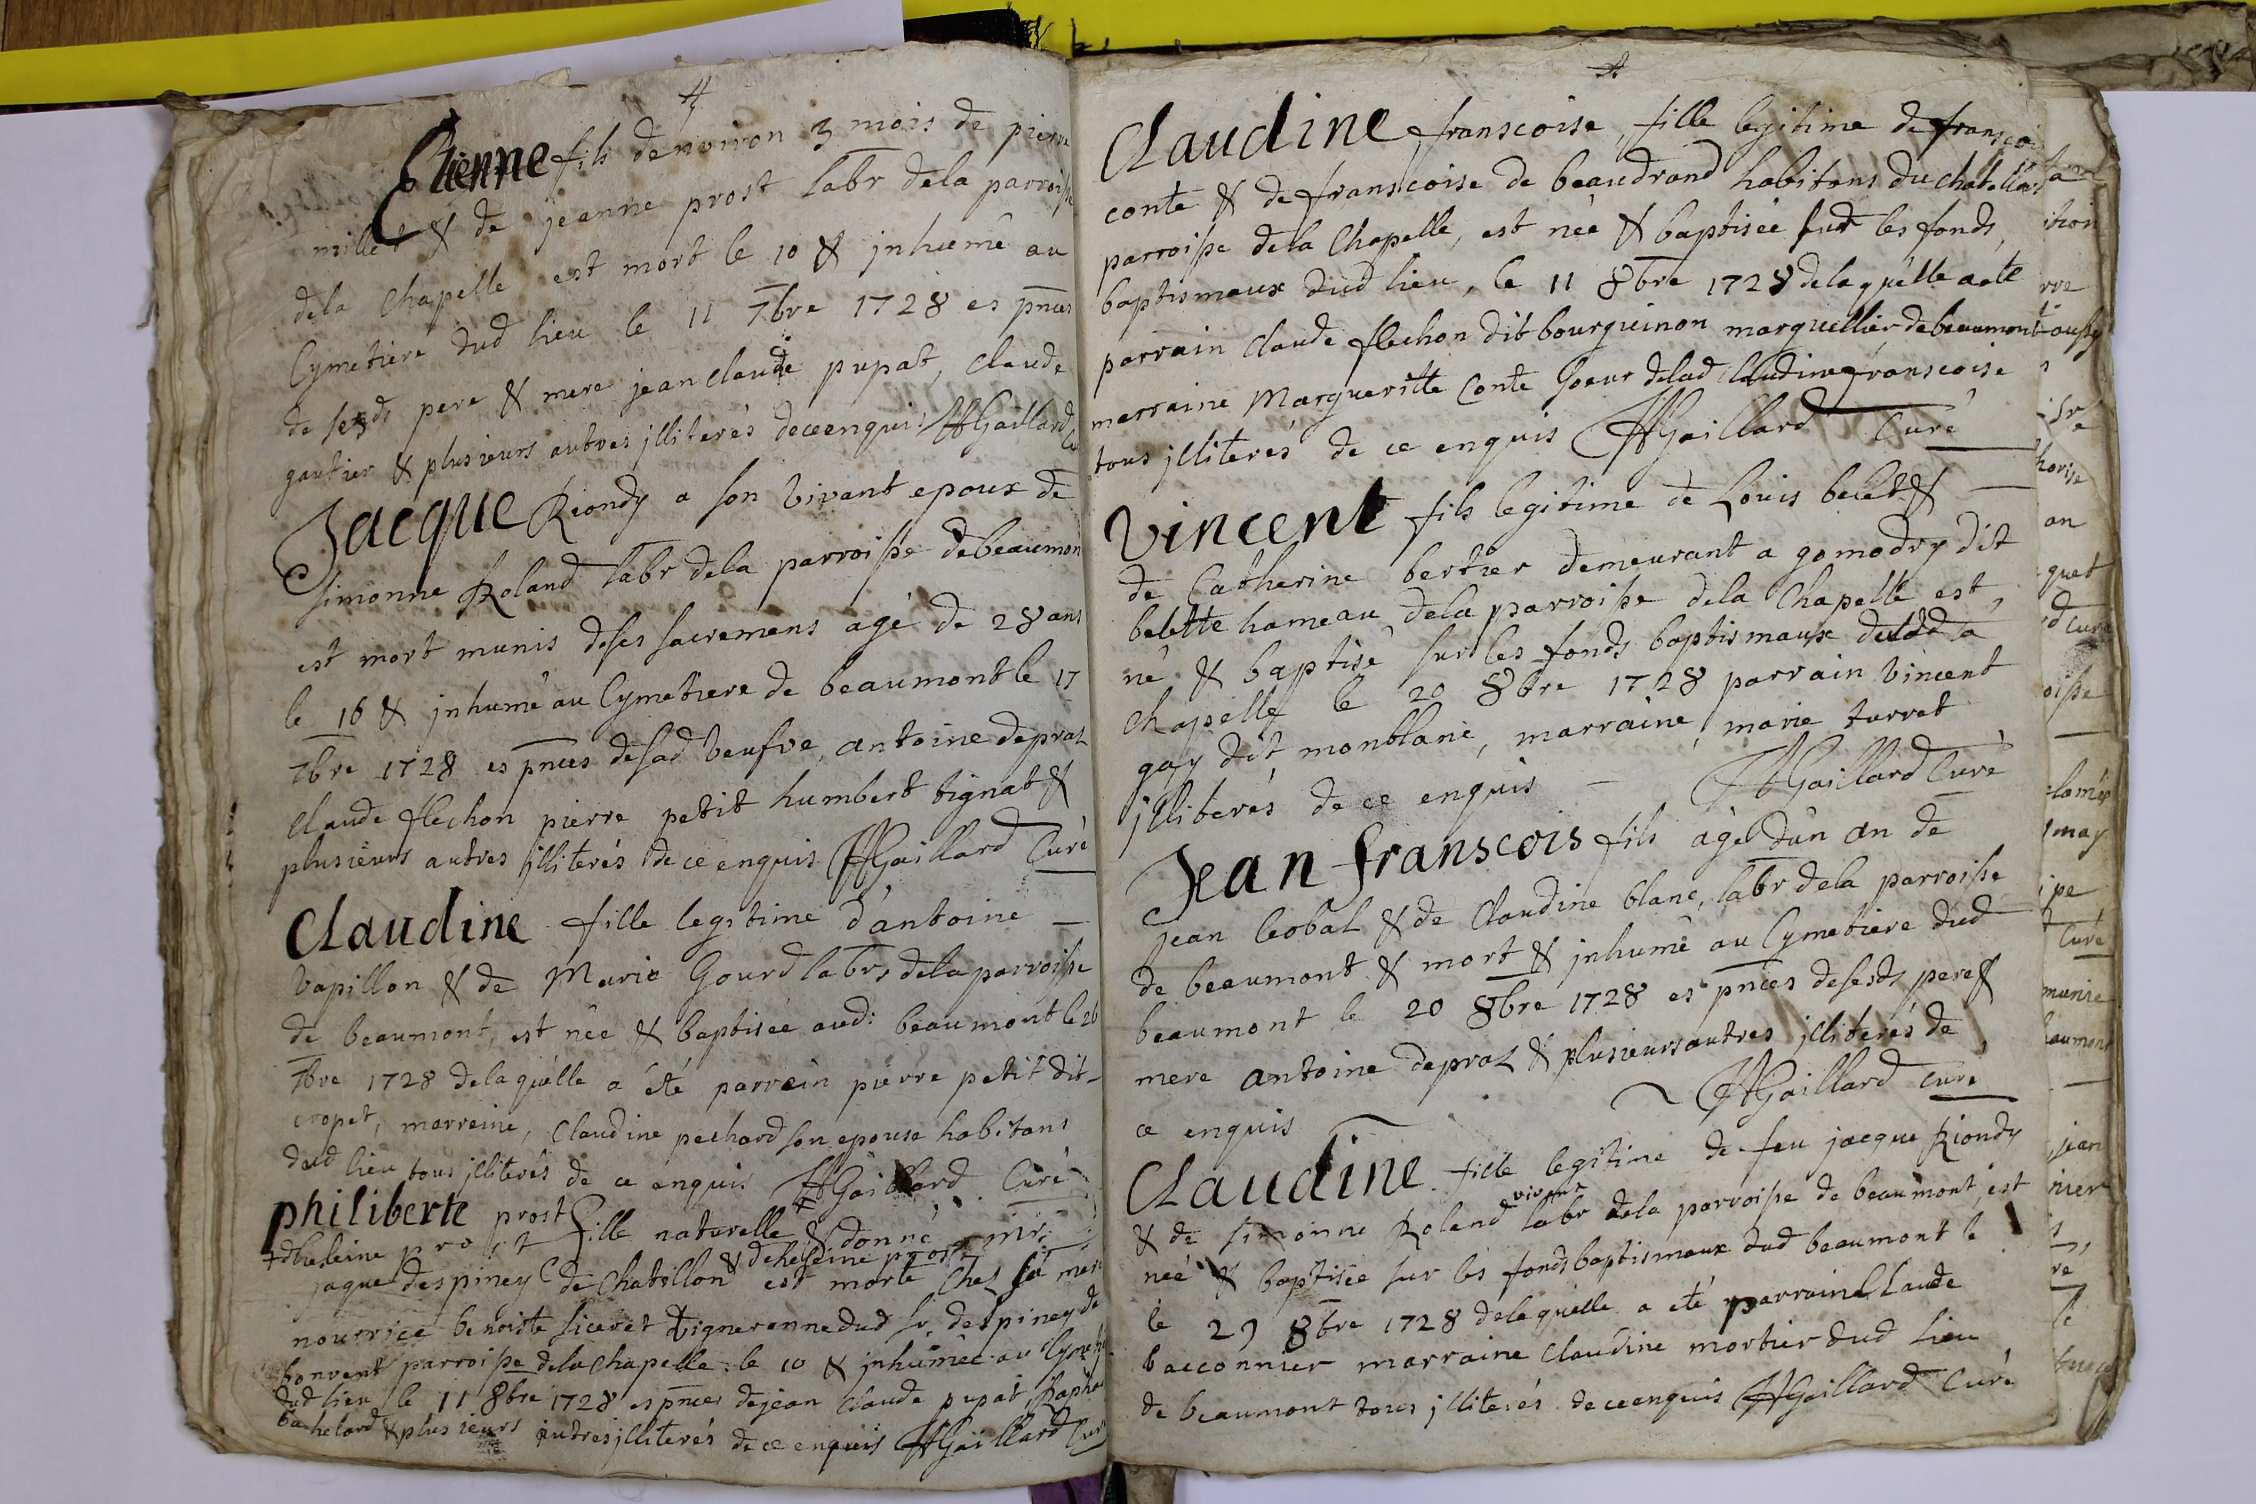 Etienne fils denviron 3 mois de pierre
millet & de jeanne prost labr dela parroisse
dela Chapelle est mort le 10 & jnhumé au
Cymetiere dud lieu le 11 7bre 1728 es pnces
de sesds pere & mere jean claude pupat, claude
gautier & plusieurs autres jlliterés deceenquis HGaillard Cu
Jacque Riondy a son vivant epoux de
simonne Roland labr dela parroisse de beaumon
est mort munis deses sacremens agé de 28 ans
le 16 & jnhumé au Cymetiere de beaumont le 17
7bre 1728 es pnces desad veufve, antoine depras
claude flechon pierre petit humbert tignat &
plusieurs autres jlliterés de ce enquis HGaillard Curé
Claudine fille legitime d'antoine
vapillon & de Marie Gourd labrs dela parroisse
de beaumont, est née & baptisée aud: beaumont le 26
7bre 1728 delaquélle a été parrein pierre petit dit
cropet, marreine, Claudine pechard son epouse habitans
dud lieu tous jlliterés de ce enquis HGaillard Curé
philiberte prost fille naturelle & donné mr:
+ dheleine prost & deheleine prost
jaque despiney de Chatillon est morte Ches sa mere
nourrice benoiste siceret vigneronne dud sr. despiney de
bonvent parroisse dela Chapelle le 10 & jnhumée au Cymet
dud lieu le 11 8bre 1728 es pnces dejean Claude pupat Rapha
bachelard & plusieurs autres jlliterés de ce enquis HGaillard Cur
Claudine franscoise, fille legitime de franscoi
conte & de franscoise de beaudrand habitans du chatellard
parroisse dela Chapelle, est née & baptisée sur les fonds,
baptismaux dud lieu, le 11 8bre 1728 delaquélle a eté
parrain claude flechon dit bourguinon marguillier, de beaumont
marraine Margueritte Conte soeur delad Claudine franscoise
tous jlliterés de ce enquis HGaillard Curé
Vincent fils legitime de Louis belet &
de Catherine bertier demeurant a gomodry dit
belette hameau dela parroisse dela Chapelle est,
né & baptisé sur les fonds baptismaux delad
Chapelle le 20 8bre 1728 parrain vincent
gay dit monblanc, marraine, marie turret
jlliterés de ce enquis HGaillard Curé
Jean franscois fils agé dun an de
jean Cobal & de Claudine blanc, labr dela parroisse
de beaumont & mort & jnhumé au Cymetiere dud
beaumont le 20 8bre 1728 es pnces desesds pere &
mere antoine depras & plusieurs autres jlliterés de
ce enquis HGaillard curé
Claudine fille legitime de feu jacque Riondy
vivant
& de simonne Roland labr dela parroisse de beaumont, est
née & baptisée sur les fonds baptismaux dud beaumont le
le 29 8bre 1728 delequelle a été parrain Claude
bacconnier marraine Claudine mortier dud lieu
de beaumont tous jlliterés deceenquis HGaillard Curé